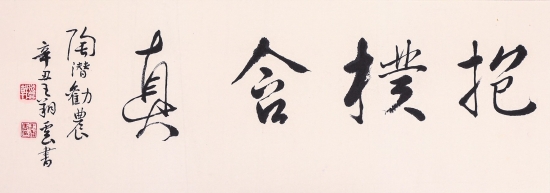 抱樸含真
陶潛勸農
辛丑王翔雲書